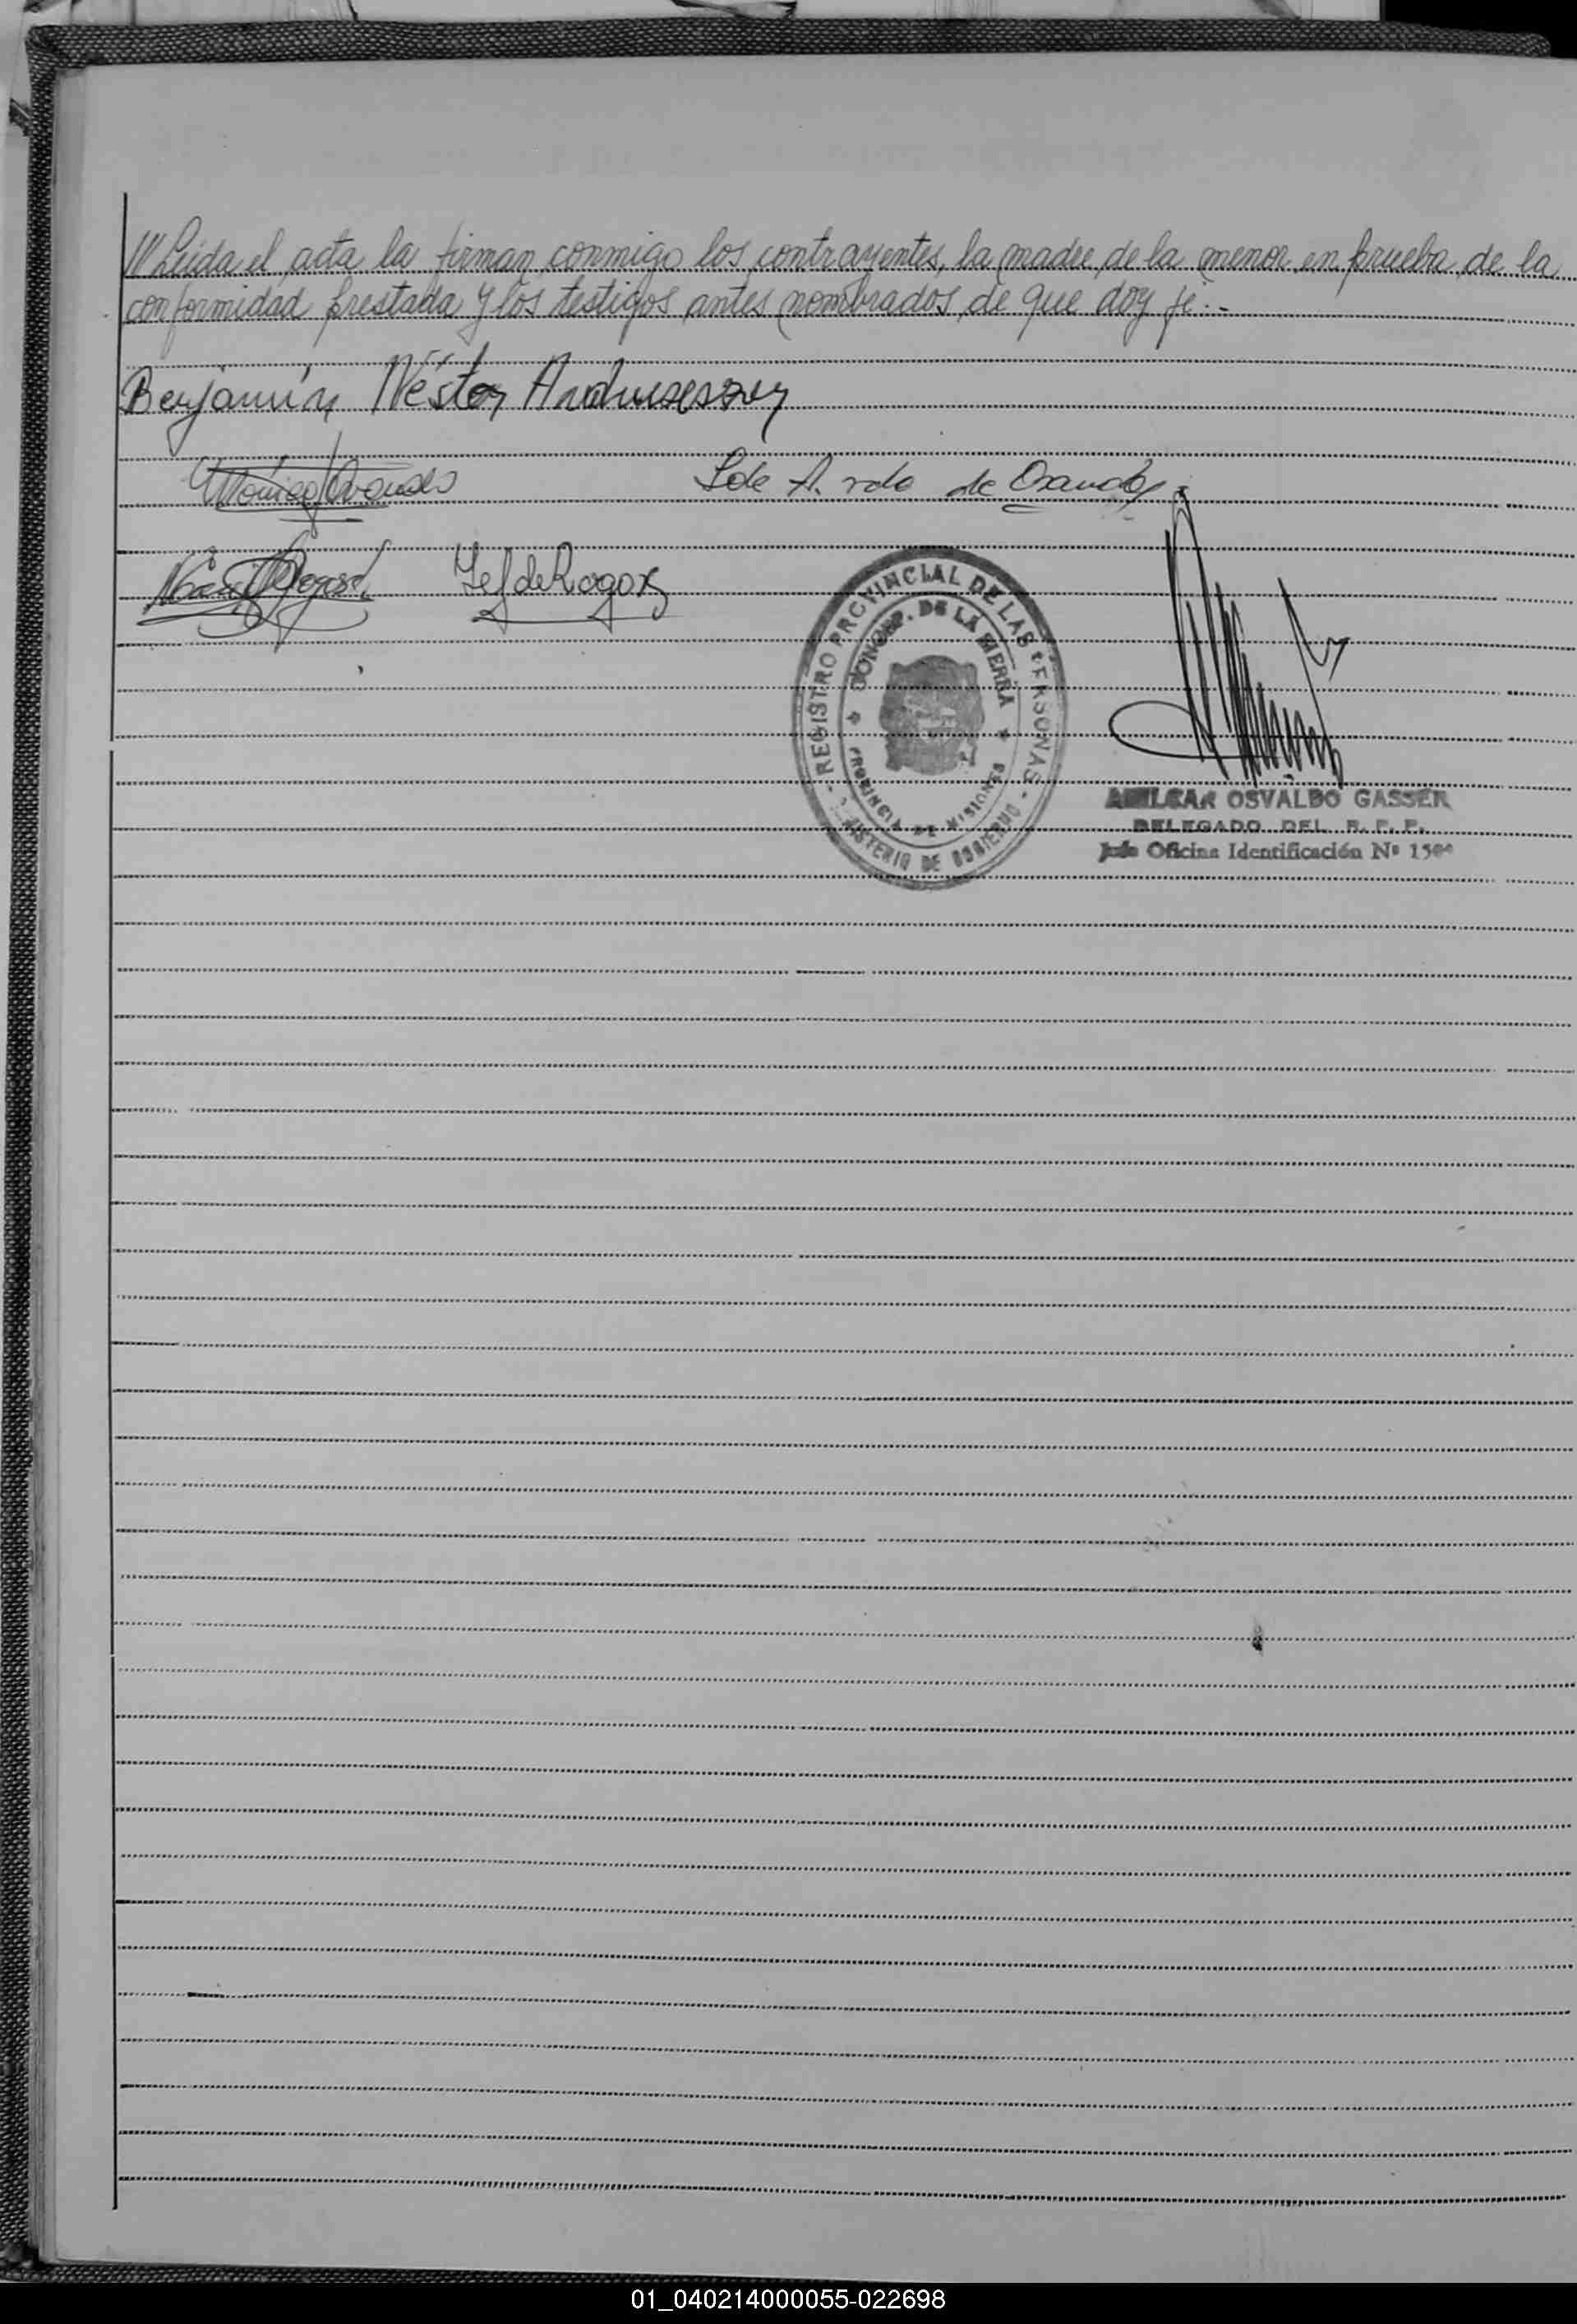 /// Leída el acta la firman conmigo los contrayentes, la madre de la menor en prueba de la
conformidad prestada y los testigos antes nombrados de que doy fé.-
Benjamín Néstor
S de A. de
REGISTRO PROVINCIAL DE LAS PERSONAS
CONCEP. DE LA SIERRA
PROVINCIA DE MISIONES
MINISTERIO DE GOBIERNO
AMILCAR OSVALDO GASSER
DELEGADO DEL R. P. P.
Jefe Oficina Identificación Nº
01_040214000055-022698